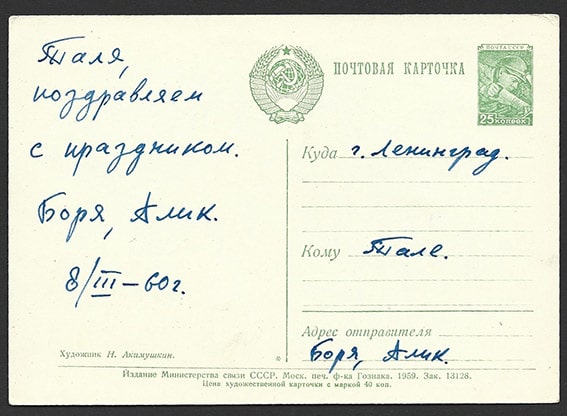 Таля,
поздравляем
с праздником.
Боря, Алик.
8/III – 60 г.
Художник Н. Акимушкин.
ПОЧТОВАЯ КАРТОЧКА
ПОЧТА СССР
25 КОПЕЕК
Куда г. Ленинград.
Кому Тале.
Адрес отправителя
Боря, Алик.
Издание Министерства связи СССР. Моск. печ. ф-ка Гознака. 1959. Зак. 13128.
Цена художественной карточки с маркой 40 коп.